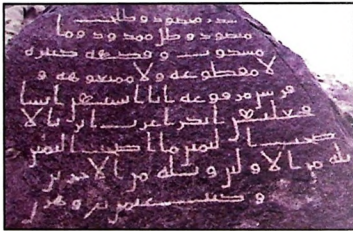 سدر مخضود وطلح
منضود وظل ممدود وما
مسكوب وفكهه كثيره
لا مقطوعه ولا ممنوعه و
فرش مرفوعه انا انشانهن انشا
فجعلنهن ابكرا عربا اترابا لا
صحب اليمين ما اصحب اليمين
ثله من الاولين وثله من الاخرين